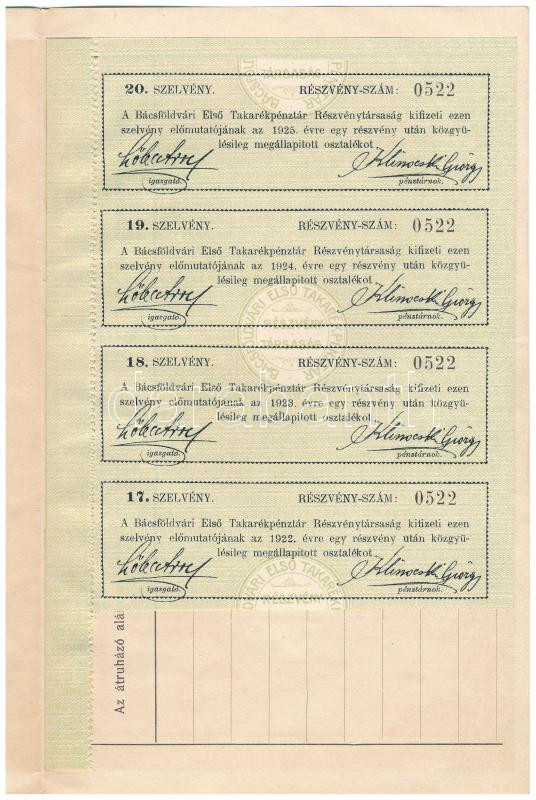 20. SZELVÉNY. RÉSZVÉNY-SZÁM: 0522
A Bácsföldvári Első Takarékpénztár Részvénytársaság kifizeti ezen
szelvény előmutatójának az 1925. évre egy részvény után közgyü-
lésileg megállapitott osztalékot
igazgató. pénztárnok.
19. SZELVÉNY. RÉSZVÉNY-SZÁM: 0522
A Bácsföldvári Első Takarékpénztár Részvénytársaság kifizeti ezen
szelvény előmutatójának az 1924. évre egy részvény után közgyü-
lésileg megállapitott osztalékot
igazgató. pénztárnok.
BÁCSFÖLDVÁRI ELSŐ TAKARÉKPÉNZTÁR
RÉSZVÉNY
TÁRSASÁG
18. SZELVÉNY. RÉSZVÉNY-SZÁM: 0522
A Bácsföldvári Első Takarékpénztár Részvénytársaság kifizeti ezen
szelvény előmutatójának az 1923. évre egy részvény után közgyü-
lésileg megállapitott osztalékot
igazgató. pénztárnok.
17. SZELVÉNY. RÉSZVÉNY-SZÁM: 0522
A Bácsföldvári Első Takarékpénztár Részvénytársaság kifizeti ezen
szelvény előmutatójának az 1922. évre egy részvény után közgyü-
lésileg megállapitott osztalékot
igazgató. pénztárnok.
Az átruházó alá